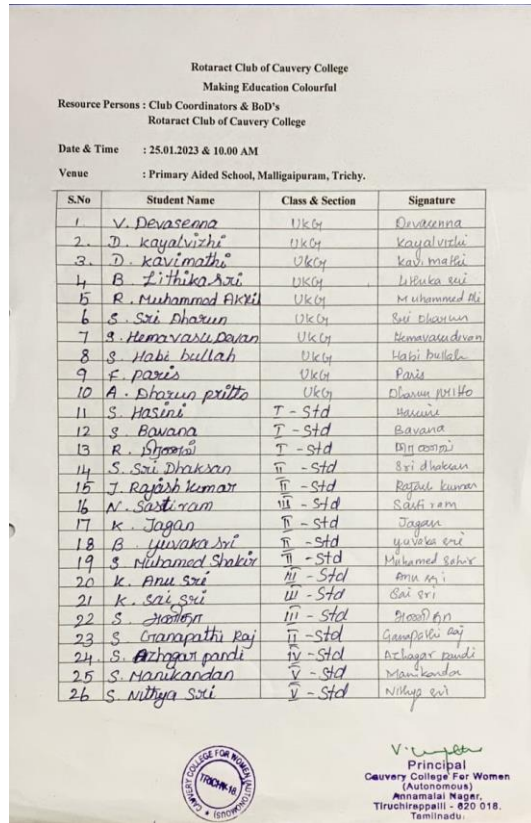 Rotaract Club of Cauvery College
Making Education Colourful
Resource Persons : Club Coordinators & BoD's
Rotaract Club of Cauvery College
Date & Time : 25.01.2023 & 10.00 AM
Venue : Primary Aided School, Malligaipuram, Trichy.
S.No Student Name Class & Section Signature
1. V. Devasenna UKG Devasenna
2. D. Kayalvizhi UKG Kayalvizhi
3. D. Kavimathi UKG Kavimathi
4 B. Lithika Sri UKG Lithika sri
5 R. Muhammod Akkil UKG Muhammed
6 S. Sri Dharun UKG Sri Dharun
7 S. Hemavasu Devan UKG Hemavasudevan
8 S. Habi bullah UKG Habi bullah
9 F. Paris UKG Paris
10 A. Dharun pritto UKG Dharun pritto
11 S. Hasini I - Std Hasini
12 S. Bavana I - Std Bavana
13 R. I - Std
14 S. Sri Dhaksan II - Std Sri dhaksan
15 J. Rajash kumar II - Std kumar
16 N. Sastiram III - Std Sastiram
17 K. Jagan II - Std Jagan
18 B. Yuvaka Sri II - Std yuvaka sri
19 S Muhamed Shakir II - Std Muhamed
20 K. Anu Sri III - Std Anu sri
21 K. Sai Sri III - Std Sai Sri
22 S. III - Std
23 S. Ganapathi Raj II - Std Ganapathi Raj
24. S. Azhagar pandi IV - Std Azhagar pandi
25 S. Manikandan V - Std Manikandan
26 S. Nithya Sri V - Std Nithya sri
CAUVERY COLLEGE FOR WOMEN (AUTONOMOUS)
TRICHY-18
Principal
Cauvery College For Women
(Autonomous)
Annamalai Nagar,
Tiruchirappalli - 620 018.
Tamilnadu.